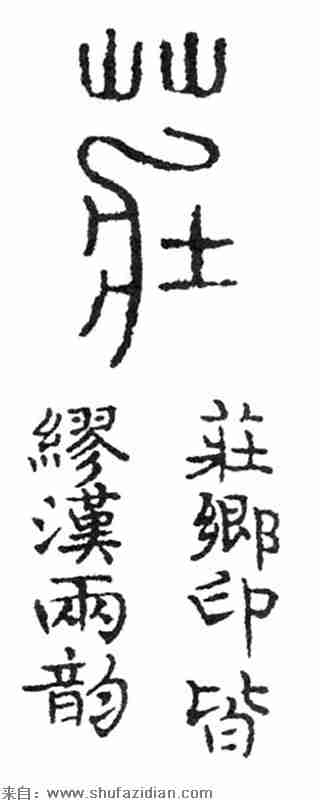 莊
莊鄉印皆
繆漢兩韵
来自：www.shufazidian.com